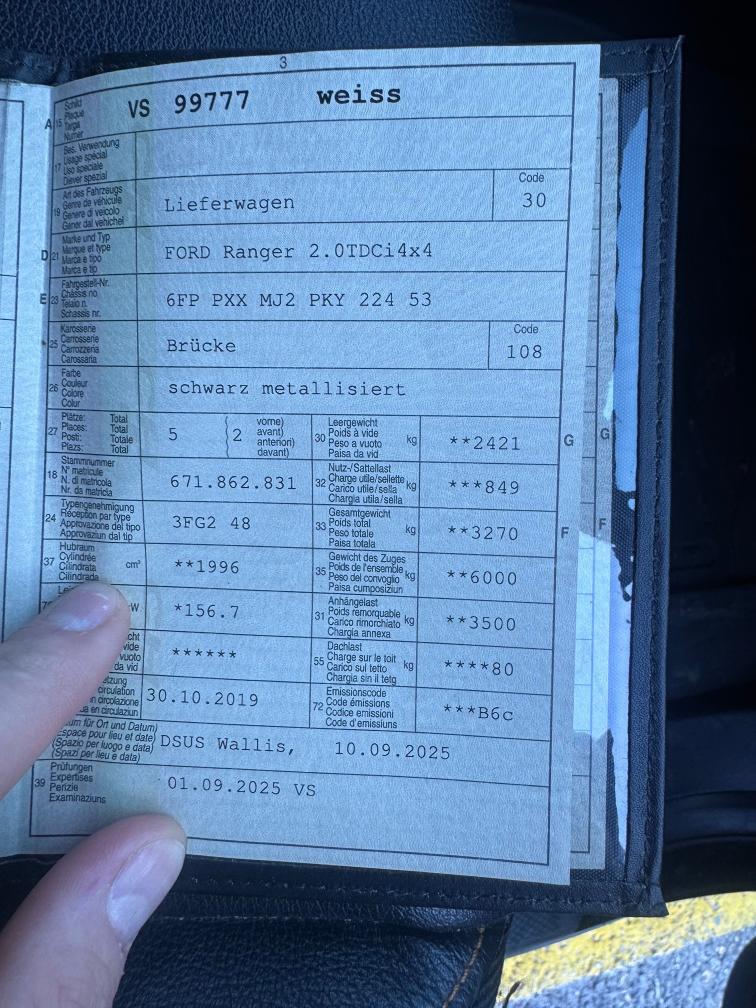 3
A 15 Schild Plaque Targa Numer VS 99777 weiss
17 Bes. Verwendung Usage spécial Uso speciale Diever spezial
19 Art des Fahrzeugs Genre de véhicule Genere di veicolo Gener dal vehichel Lieferwagen Code 30
D 21 Marke und Typ Marque et type Marca e tipo Marca e tip FORD Ranger 2.0TDCi4x4
E 23 Fahrgestell-Nr. Châssis no Telaio n. Schassis nr. 6FP PXX MJ2 PKY 224 53
25 Karosserie Carrosserie Carrozzeria Carossaria Brücke Code 108
26 Farbe Couleur Colore Colur schwarz metallisiert
27 Plätze: Total Places: Total Posti: Totale Plazs: Total 5 ( 2 vorne) avant) anteriori) davant) 30 Leergewicht Poids à vide Peso a vuoto Paisa da vid kg **2421 G G
18 Stammnummer N° matricule N. di matricola Nr. da matricla 671.862.831 32 Nutz-/Sattellast Charge utile/sellette Carico utile/sella Chargia utila/sella kg ***849
24 Typengenehmigung Réception par type Approvazione del tipo Approvaziun dal tip 3FG2 48 33 Gesamtgewicht Poids total Peso totale Paisa totala kg **3270 F F
37 Hubraum Cylindrée Cilindrata Cilindrada cm³ **1996 35 Gewicht des Zuges Poids de l'ensemble Peso del convoglio Paisa cumposiziun kg **6000
W *156.7 31 Anhängelast Poids remorquable Carico rimorchiato Chargia annexa kg **3500
cht vide vuoto da vid ****** 55 Dachlast Charge sur le toit Carico sul tetto Chargia sin il tetg kg ****80
etzung circulation in circolazione en circulaziun 30.10.2019 72 Emissionscode Code émissions Codice emissioni Code d'emissiuns ***B6c
um für Ort und Datum) Espace pour lieu et date) (Spazio per luogo e data) (Spazi per lieu e data) DSUS Wallis, 10.09.2025
39 Prüfungen Expertises Perizie Examinaziuns 01.09.2025 VS